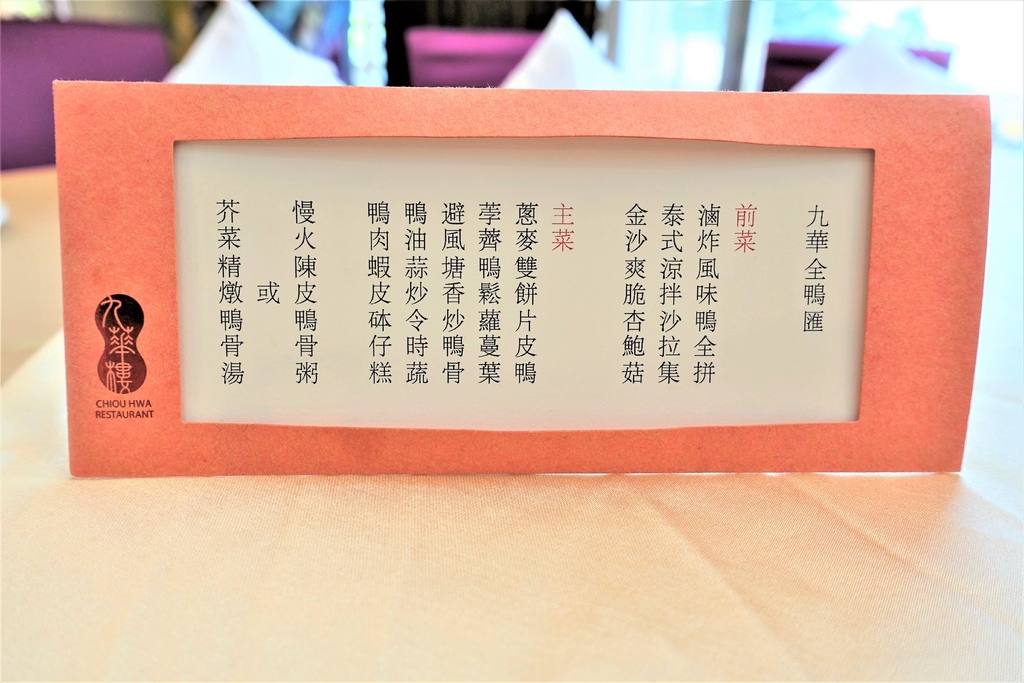 九華全鴨匯
前菜
滷炸風味鴨全拼
泰式涼拌沙拉集
金沙爽脆杏鮑菇
主菜
蔥麥雙餅片皮鴨
荸薺鴨鬆蘿蔓葉
避風塘香炒鴨骨
鴨油蒜炒令時蔬
鴨肉蝦皮砵仔糕
慢火陳皮鴨骨粥
或
芥菜精燉鴨骨湯
九華樓
CHIOU HWA
RESTAURANT